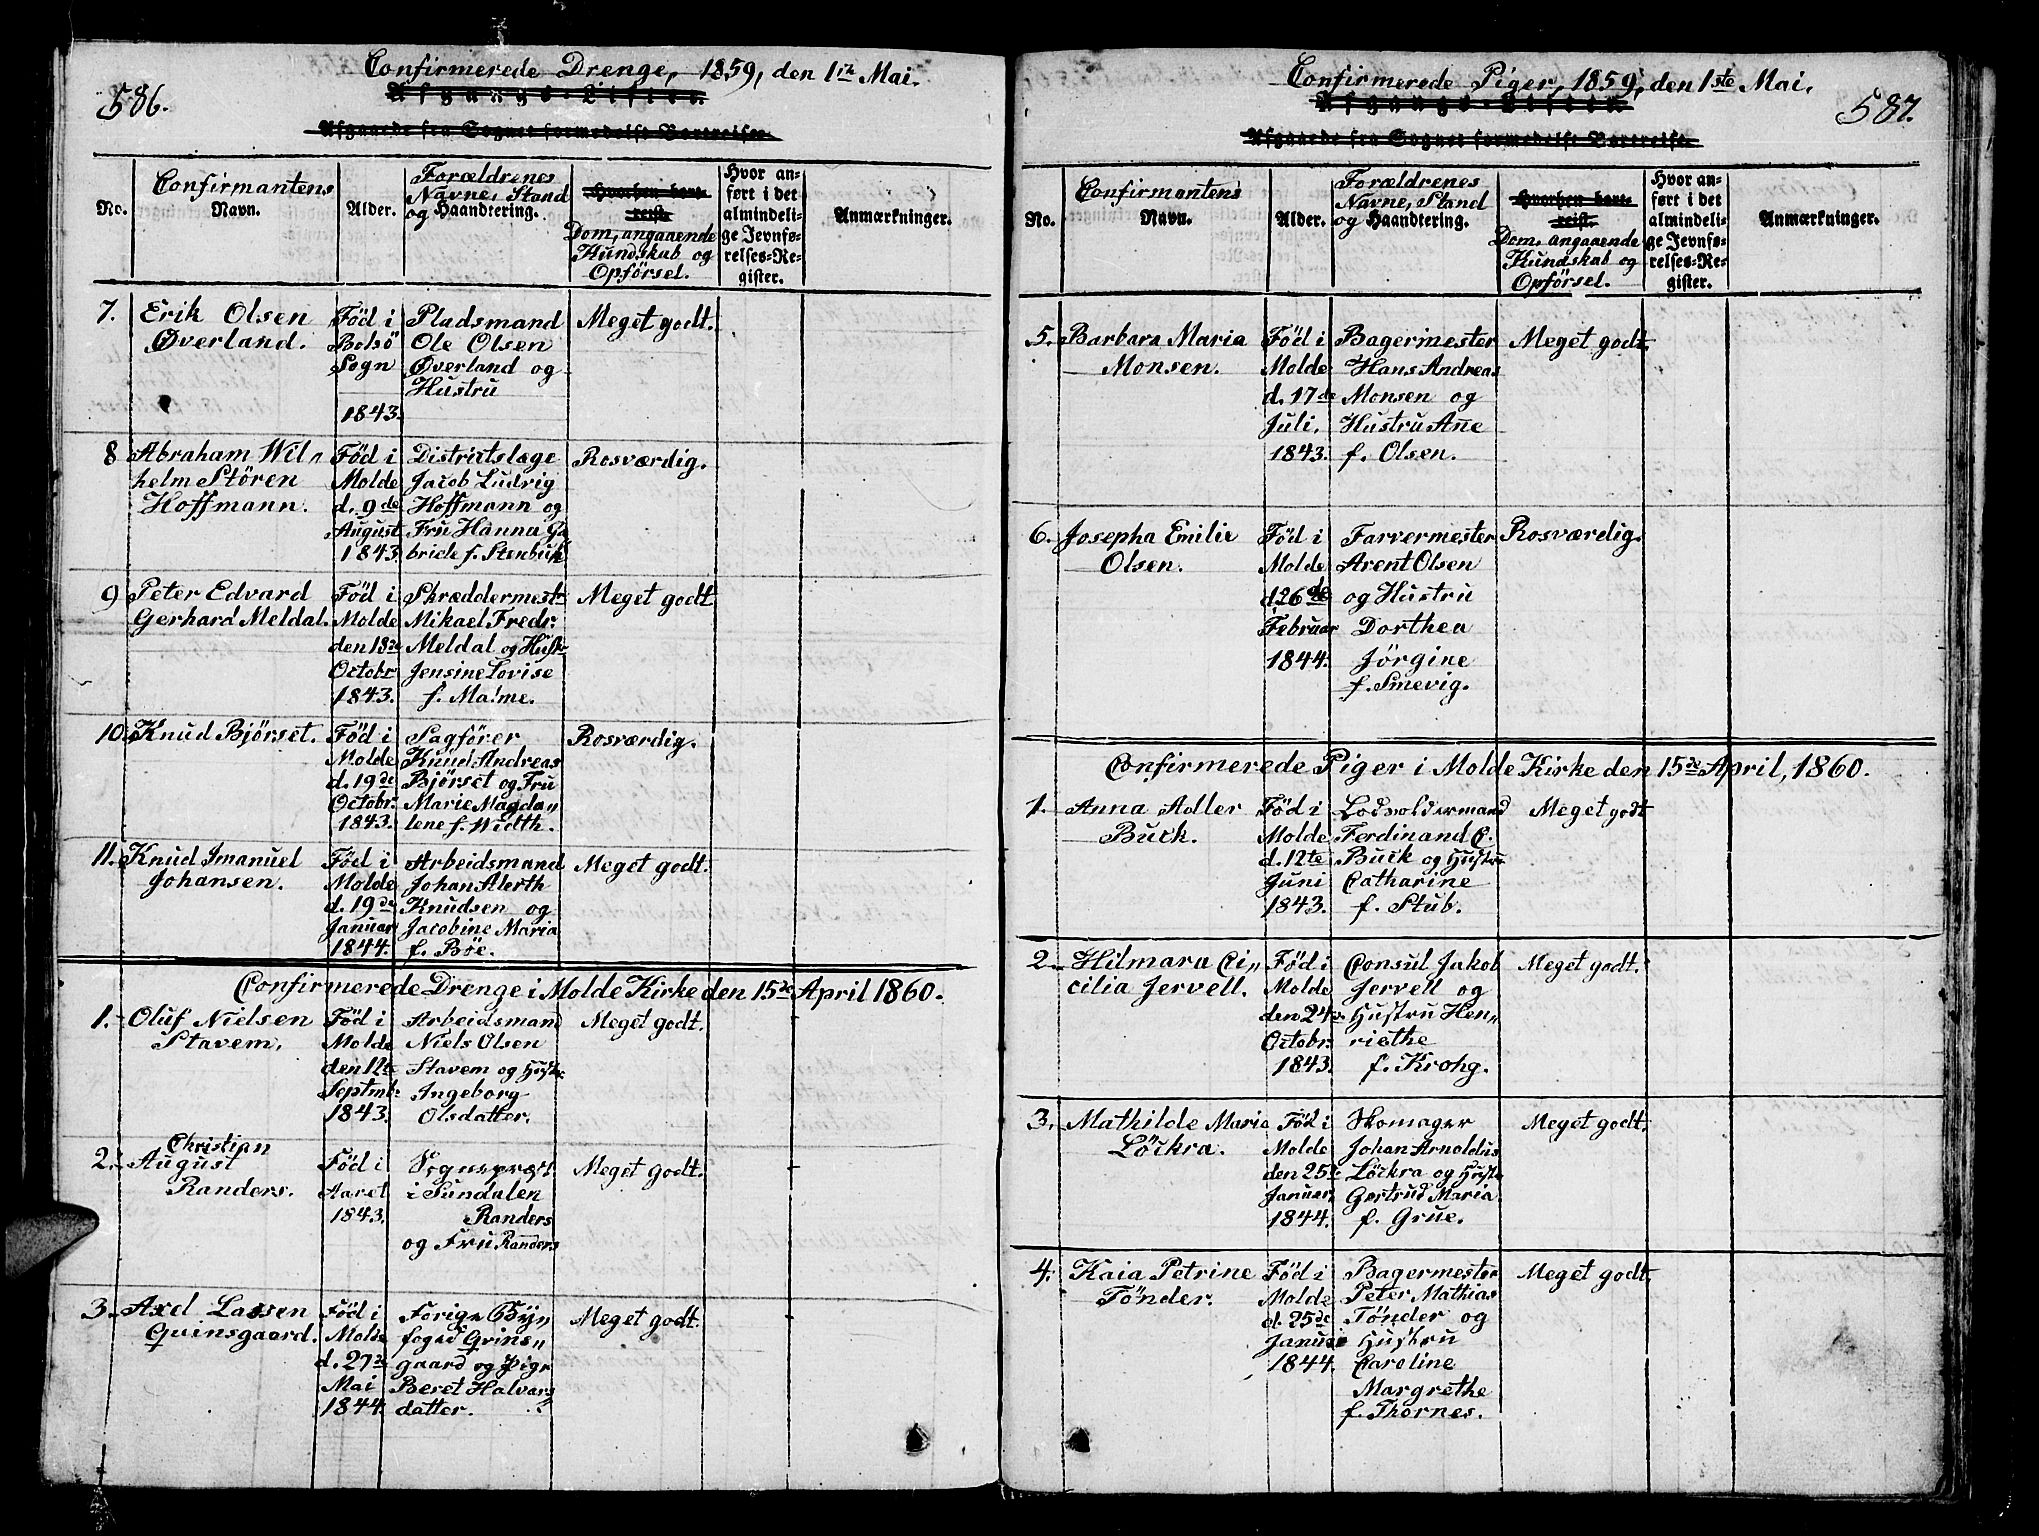 586.
Confirmerede Drenge, 1859, den 1ste Mai.
Afgangs-Lister.
Afgaaede fra Sognet formedelst Bortreiser
No.
Confirmantens
Navn.
Alder.
Forældrenes
Navne, Stand
og Haandtering.
Hvorhen bort-
reist.
Dom, angaaende
Kundskab og
Opførsel.
Hvor an-
ført i det
almindeli-
ge Jevnfø-
relses-Re-
gister.
Anmærkninger.
7. Erik Olsen
Øverland.
Föd i
Bolsö
Sogn
1843.
Pladsmand
Ole Olsen
Øverland og
Hustru
Meget godt.
8 Abraham Wil„
helm Stören
Hoffmann.
Föd i
Molde
d. 9de
August
1843.
Districtslæge
Jacob Ludvig
Hoffmann og
Fru Hanna Ga
briele f. Stenbuk
Rosværdig.
9 Peter Edvard
Gerhard Meldal.
Föd i
Molde
den 18de
Octobr
1843.
Skræddermestr
Mikael Fredr.
Meldal og Hustr
Jensine Lovise
f. Malme.
Meget godt
10. Knud Bjørset.
Föd i
Molde
d. 19de
Octobr.
1843.
Sagförer
Knud Andreas
Björset og Fru
Marie Magda„
lene f. Width.
Rosværdig.
11. Knud Imanuel
Johansen.
Föd i
Molde
d. 19de
Januar
1844.
Arbeidsmand
Johan Alerth
Knudsen og
Jacobine Maria
f. Böe.
Meget godt.
Confirmerede Drenge i Molde Kirke den 15de April 1860.
1. Oluf Nielsen
Stavem,
Föd i
Molde
den 12te
Septmb.
1843.
Arbeidsmand
Niels Olsen
Stavem og Hustr.
Ingeborg
Olsdatter.
Meget godt.
2. Christian
August
Randers.
Föd i
Aaret
1843.
Sognepræst
i Sundalen
Randers
og Fru Randers
Meget godt.
3. Axel Lassen
Qvinsgaard.
Föd i
Molde
d. 27de
Mai
1844.
Forige By„
foged Qvins„
gaard og Pige
Beret Halvars
datter.
Meget godt.
587.
Confirmerede Piger, 1859, den 1ste Mai.
Afgangs-Lister.
Afgaaede fra Sognet formedelst Bortreise
No.
Confirmantens
Navn.
Alder.
Forældrenes
Navne, Stand
og Haandtering.
Hvorhen bort-
reist.
Dom, angaaende
Kundskab og
Opførsel.
Hvor an-
ført i det
almindeli-
ge Jevnfø-
relses-Re-
gister.
Anmærkninger.
5. Barbara Maria
Monsen.
Föd i
Molde
d. 17de
Juli,
1843.
Bagermester
Hans Andreas
Monsen og
Hustru Ane
f. Olsen.
Meget godt.
6. Josepha Emilie
Olsen.
Föd i
Molde
d. 26de
Februar
1844.
Farvermester
Arent Olsen
og Hustru
Dorthea
Jörgine
f. Smevig.
Rosværdig.
Confirmerede Piger i Molde Kirke den 15de April, 1860.
1. Anna Adler
Buck.
Föd i
Molde
d. 12te
Juni
1843.
Lodsoldermand
Ferdinand C.
Buck og Hustru
Catharine
f. Stub.
Meget godt
2. Hilmara Ci„
cilia Jervell.
Föd i
Molde
den 24de
Octobr.
1843.
Consul Jakob
Jervell og
Hustru Hen„
riethe
f. Krohg.
Meget godt.
3. Mathilde Marie
Löckra.
Föd i
Molde
den 25de
Januar,
1844.
Skomager
Johan Arnoldus
Löckra og Hustr
Gertrud Maria
f. Grue.
Meget godt.
4. Kaia Petrine
Tönder.
Föd i
Molde
d. 25de
Januar
1844.
Bagermester
Peter Mathias
Tönder og
Hustru
Caroline
Margrethe
f. Thornes.
Meget godt.